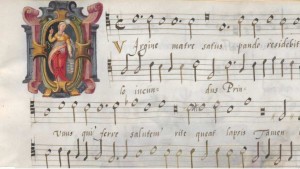 Virgine matre satus pando residebit
le iucun- dus Pria-
Vnus qui ferre salutem rite queat lapsis Tamen